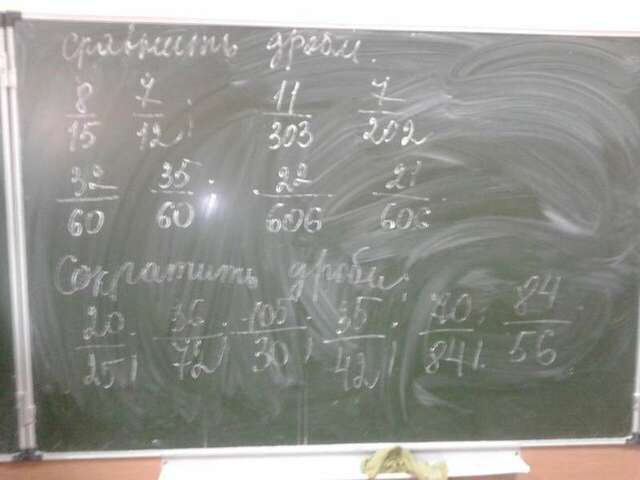 сравнить дроби.
8/15 7/12; 11/303 7/202
32/60 35/60; 22/606 21/606
Сократить дроби:
20/25; 36/72; 105/30; 35/42; 70/84; 84/56